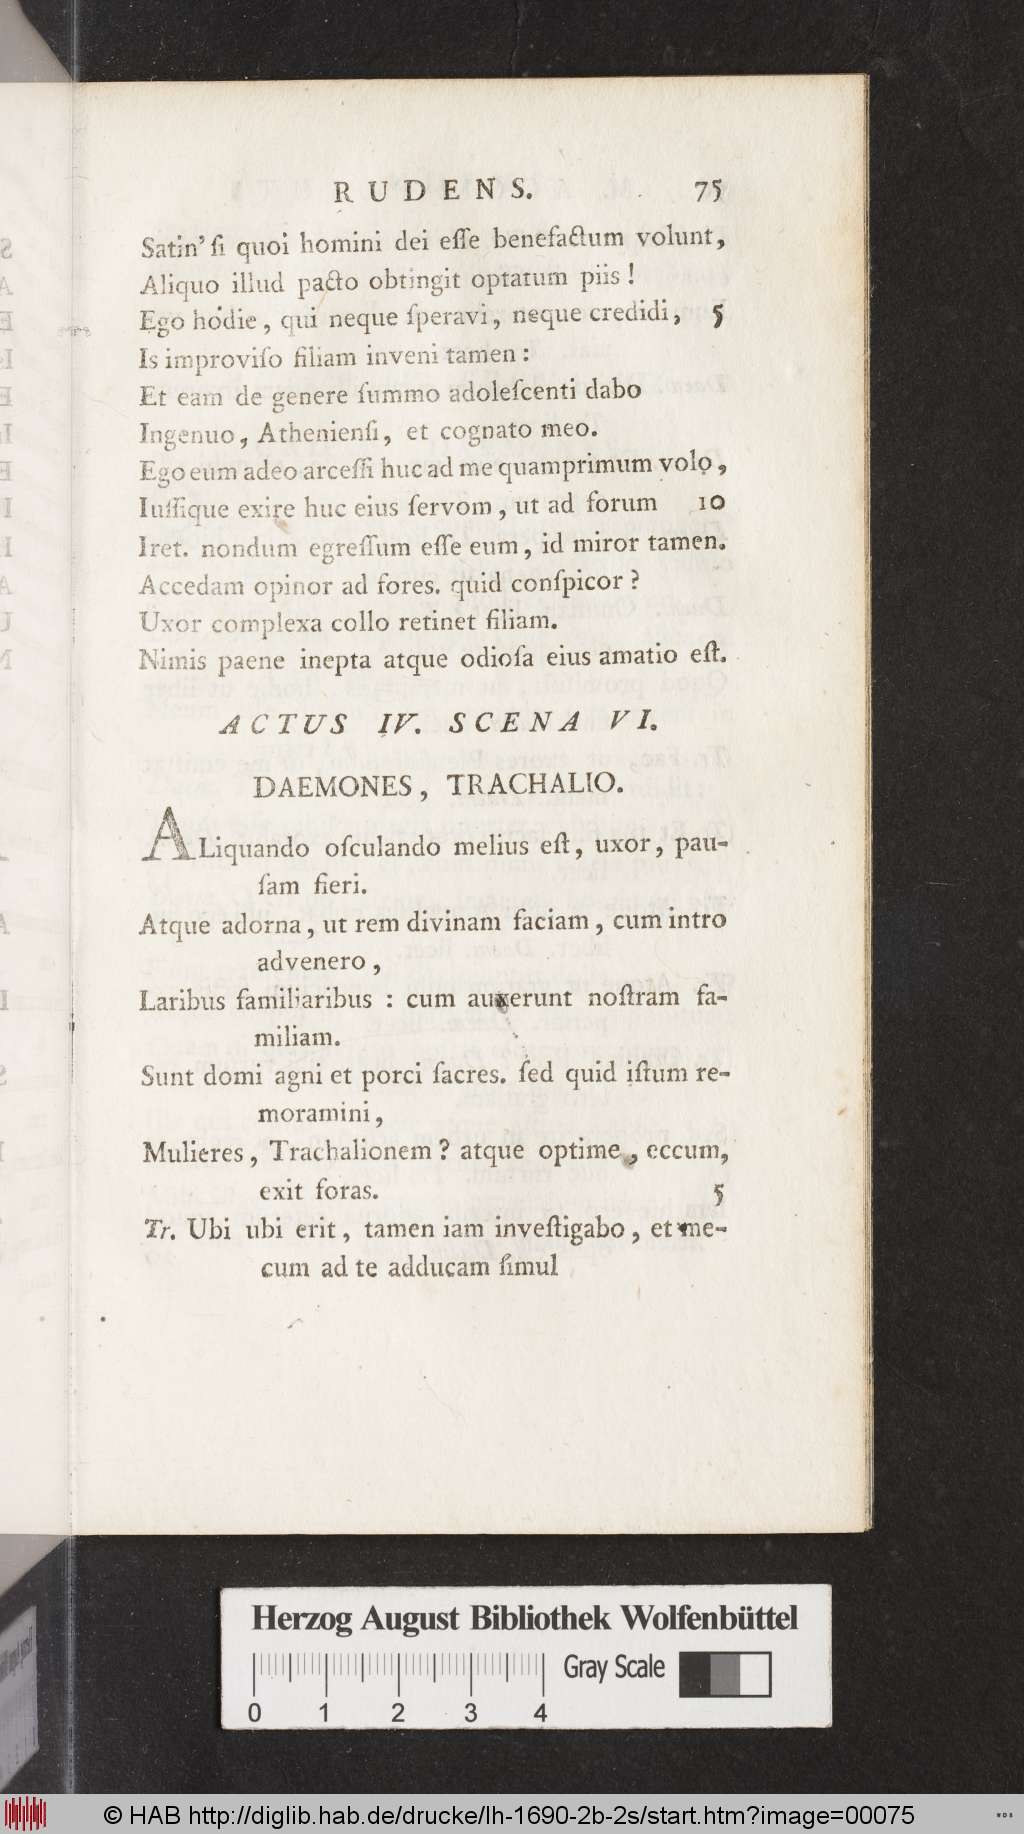 RUDENS. 75
Satin' ſi quoi homini dei eſſe benefactum volunt,
Aliquo illud pacto obtingit optatum piis!
Ego hodie, qui neque ſperavi, neque credidi, 5
Is improviſo filiam inveni tamen:
Et eam de genere ſummo adoleſcenti dabo
Ingenuo, Athenienſi, et cognato meo.
Ego eum adeo arceſſi huc ad me quamprimum volo,
Iuſſique exire huc eius ſervom, ut ad forum 10
Iret. nondum egreſſum eſſe eum, id miror tamen.
Accedam opinor ad fores. quid conſpicor?
Uxor complexa collo retinet filiam.
Nimis paene inepta atque odioſa eius amatio eſt.
ACTUS IV. SCENA VI.
DAEMONES, TRACHALIO.
ALiquando oſculando melius eſt, uxor, pau-
ſam fieri.
Atque adorna, ut rem divinam faciam, cum intro
advenero,
Laribus familiaribus: cum auxerunt noſtram fa-
miliam.
Sunt domi agni et porci ſacres. ſed quid iſtum re-
moramini,
Mulieres, Trachalionem? atque optime, eccum,
exit foras. 5
Tr. Ubi ubi erit, tamen iam inveſtigabo, et me-
cum ad te adducam ſimul
Herzog August Bibliothek Wolfenbüttel
Gray Scale
0 1 2 3 4
© HAB http://diglib.hab.de/drucke/lh-1690-2b-2s/start.htm?image=00075